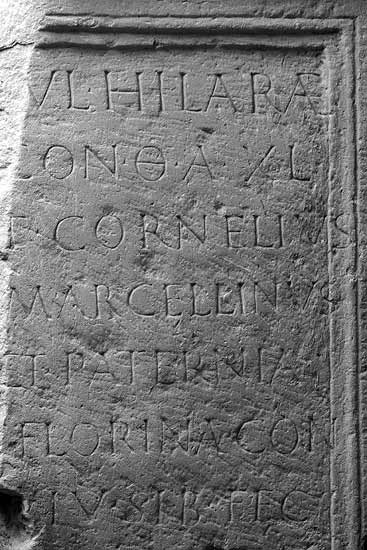 VL·HILARAE
CON·Θ·A·XL
F·CORNELIVS
MARCELLINVS
ET·PATERNIA
FLORINA CON
IV·SIB·FEC